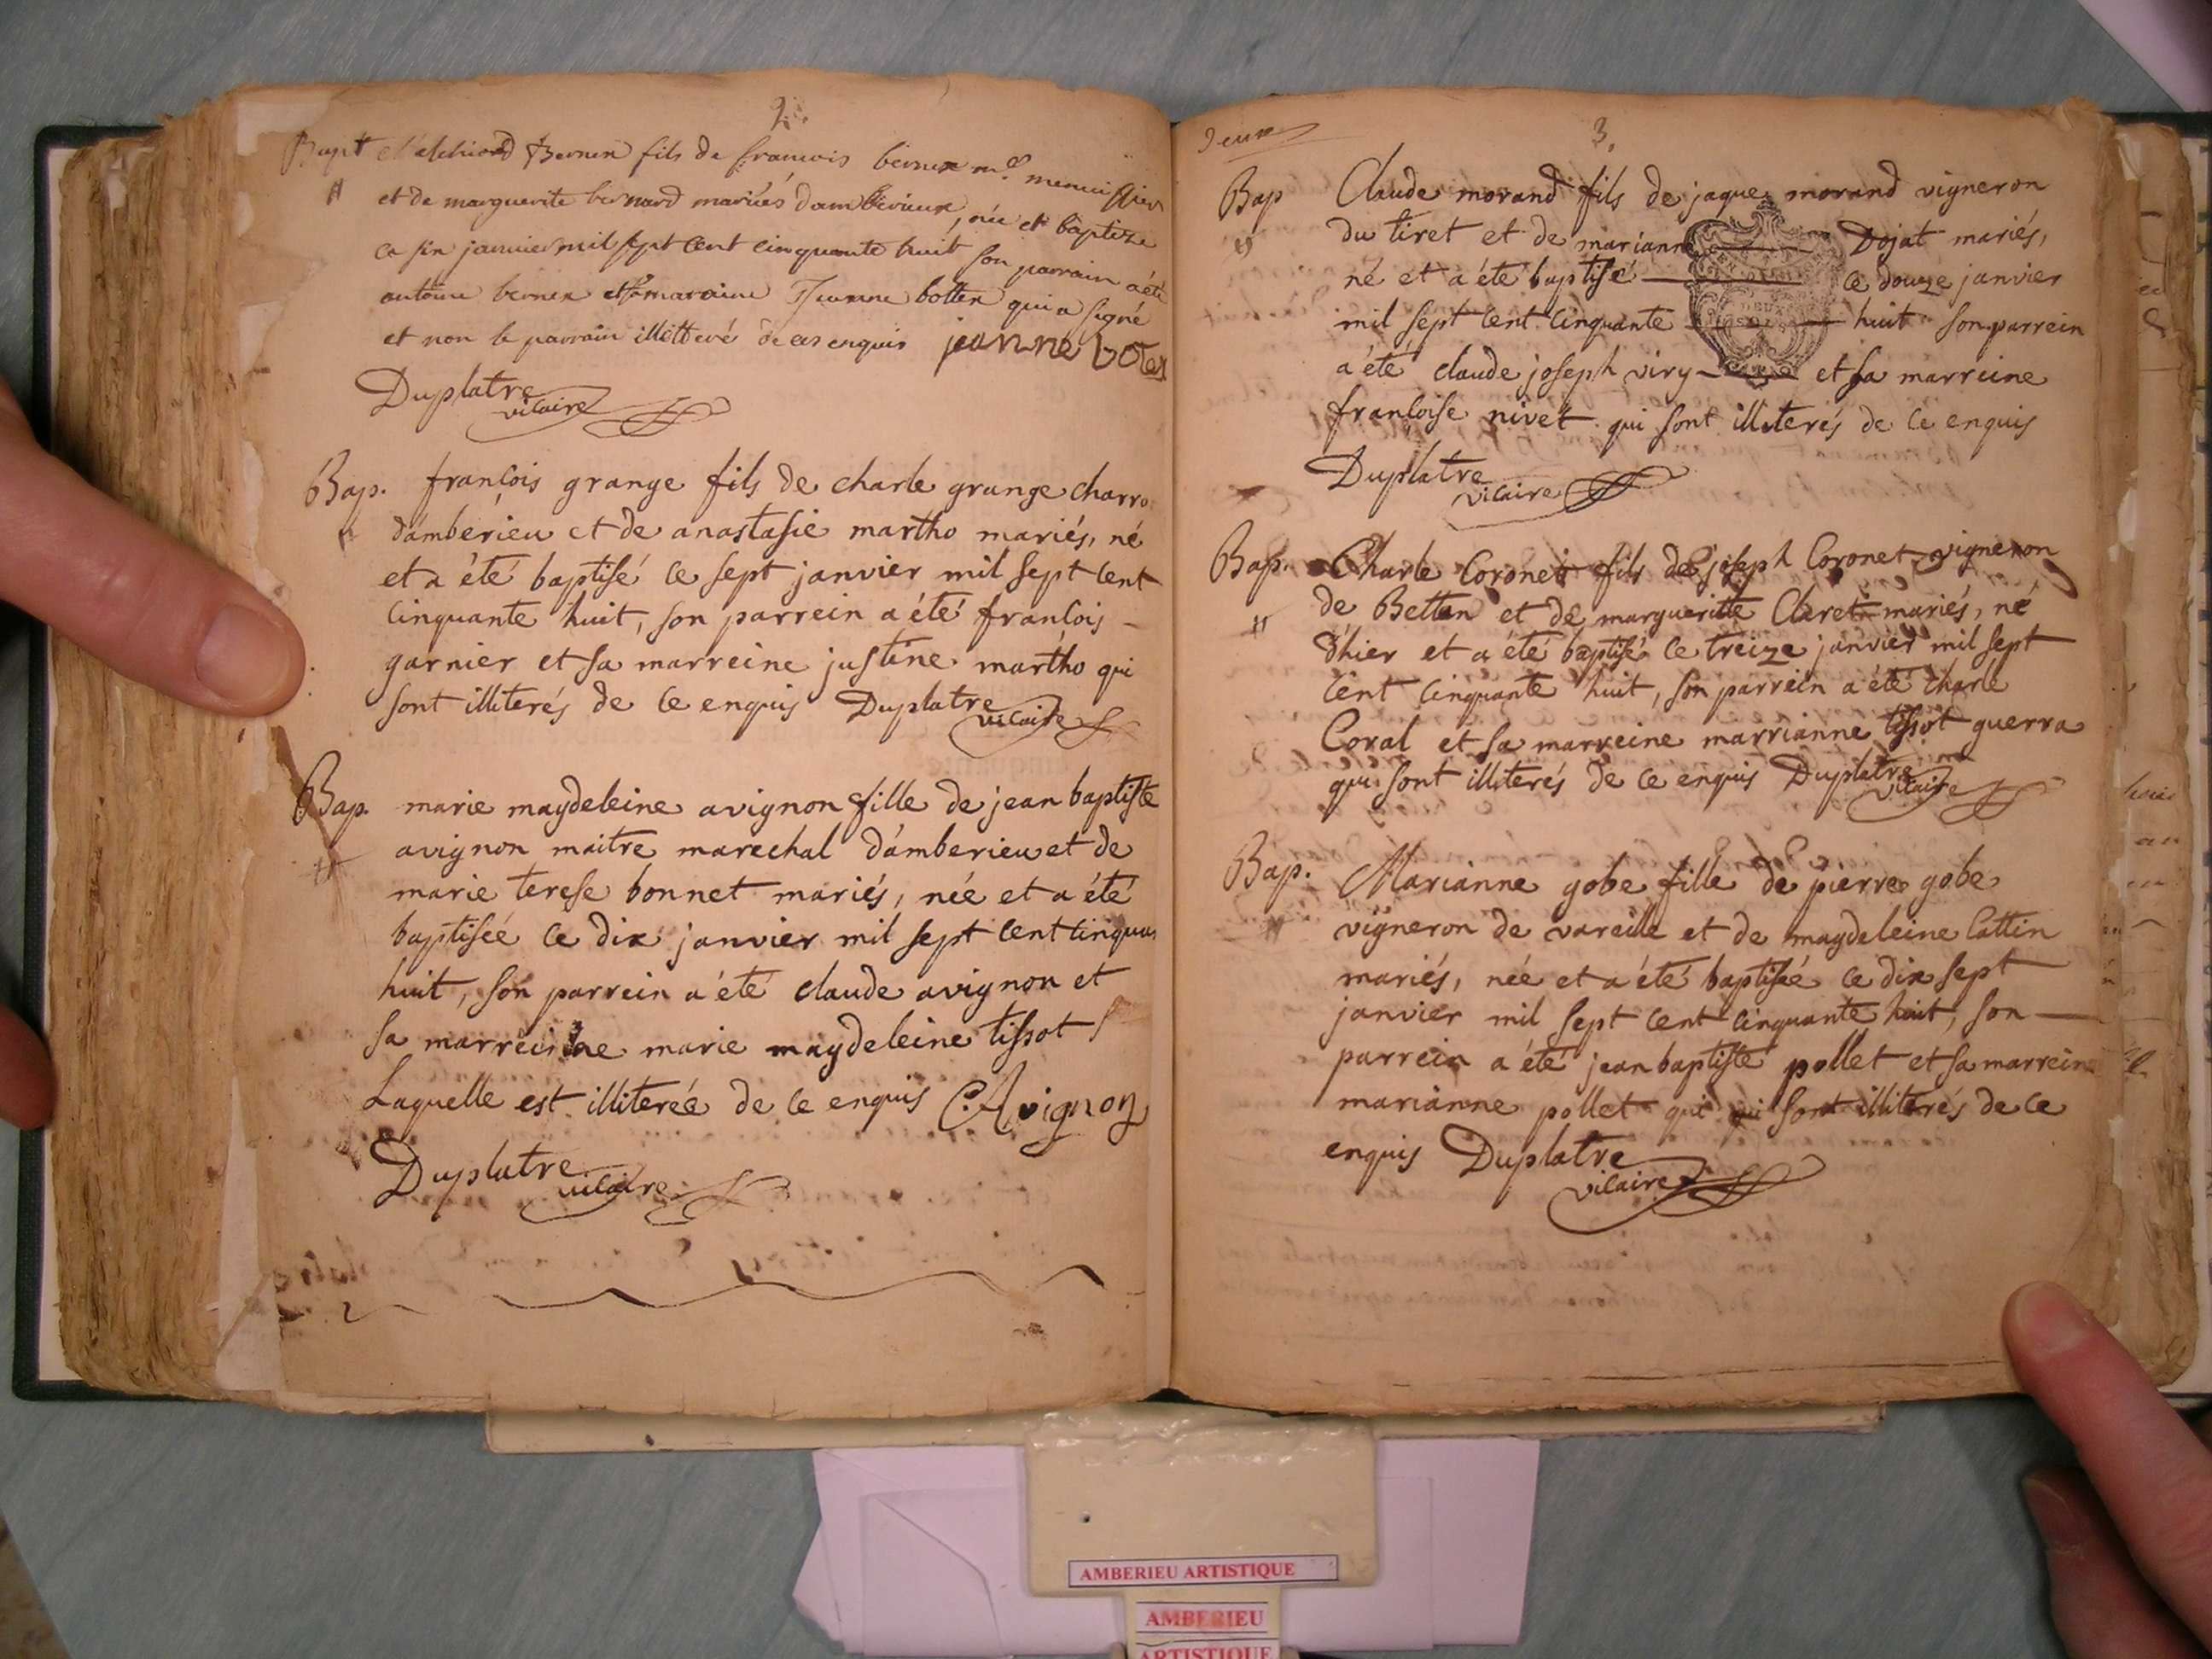 2.
Bapt Melchiord Bernex fils de francois bernex me. menuissier
et de marguerite bernard mariés damberieux, née et baptize
ce six janvier mil sept cent cinquante huit son parrain a été
antoine bernex et sa maraine Jeanne bottex qui a signé
et non le parrain illetteré de ce enquis jeanne botex
Duplatre
vicaire
Bap. françois grange fils de charle grange charro
d'amberieu et de anastasie martho mariés, né
et a été baptisé ce sept janvier mil sept cent
cinquante huit, son parrein a été françois
garnier et sa marreine justine martho qui
sont illiterés de ce enquis Duplatre
vicaire
Bap. marie magdeleine avignon fille de jean baptiste
avignon maitre marechal d'amberieu et de
marie terese bonnet mariés, née et a été
baptisée ce dix janvier mil sept cent cinquan
huit, son parrein a été claude avignon et
sa marreine marie magdeleine tissot
Laquelle est illiterée de ce enquis C. Avignon
Duplatre
vicaire
deux
3.
Bap Claude morand fils de jaque morand vigneron
du tiret et de marianne Dojat mariés,
né et a été baptisé ce douze janvier
mil sept cent cinquante huit son parrein
a été claude joseph viry et sa marreine
françoise nivet qui sont illiterés de ce enquis
Duplatre
vicaire
Bap. Charle Coronet fils de joseph Coronet vigneron
de Bettan et de margueritte Claret mariés, né
d'hier et a été baptisé ce treize janvier mil sept
cent cinquante huit, son parrein a été charle
Coral et sa marreine marrianne tissot guerra
qui sont illiterés de ce enquis Duplatre
vicaire
Bap. Marianne gobe fille de pierre gobe
vigneron de vareille et de magdeleine Cattin
mariés, née et a été baptisée ce dix sept
janvier mil sept cent cinquante huit, son
parrein a été jean baptiste pollet et sa marreine
marianne pollet qui qui sont illiterés de ce
enquis Duplatre
vicaire
AMBERIEU ARTISTIQUE
AMBERIEU
ARTISTIQUE